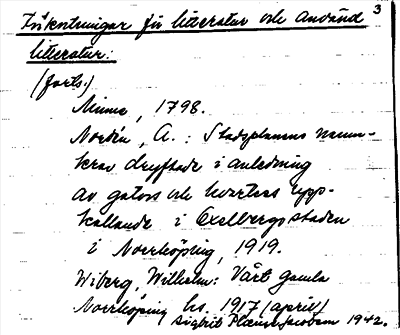 3
Inkortningar för litteratur och använd
litteratur:
(forts.)
Minne, 1798.
Nordén, A.: Stadsplanens namn-
krav dryftade i anledning
av gators och kvarters upp-
kallande i Exelbergsstaden
i Norrköping, 1919.
Wiberg, Wilhelm: Vårt gamla
Norrköping hs. 1917 (april)
Sigbrit Plænge Jacobson 1942.